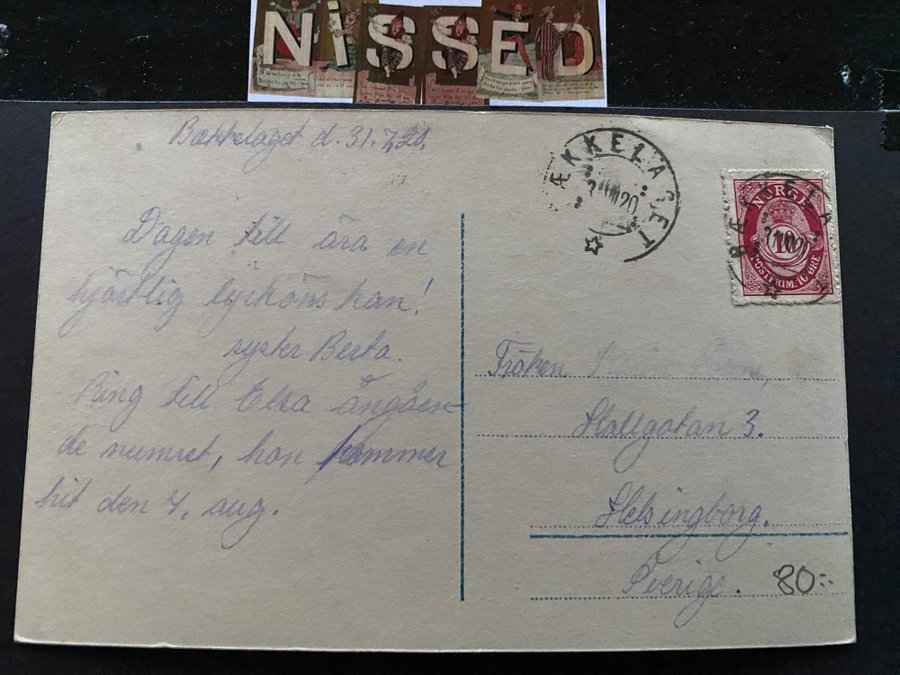 NISSED
Bækkelaget d. 31.7.20.
BÆKKELAGET
31 VII 20
NORGE
10
POSTFRIM. 10 ØRE
BÆKKELAGET
31 VII 20
Dagen till ära en
hjärtlig lyckönskan!
syster Berta.
Ring till Elsa ångåen-
de numret, hon kommer
hit den 4. aug.
Fröken
Hallgatan 3.
Helsingborg.
Sverige.
80:-